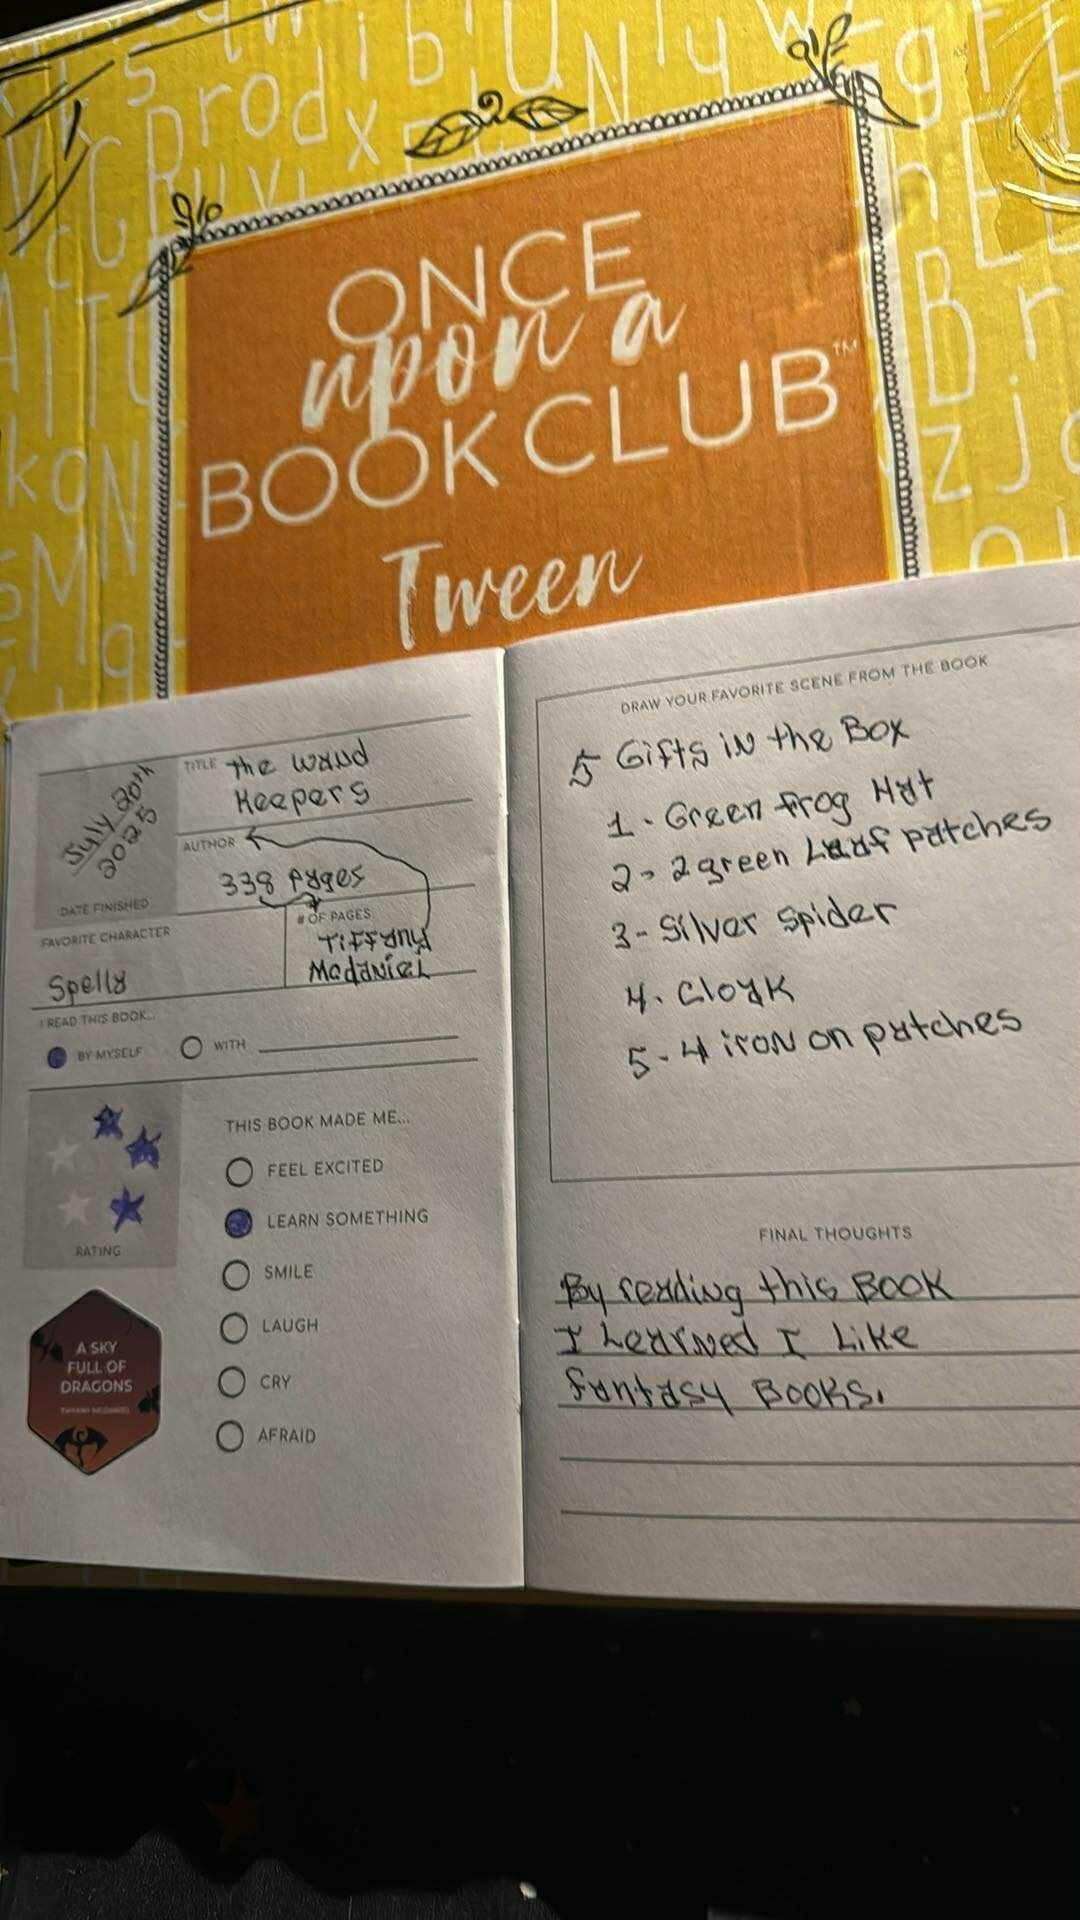 ONCE
upon a
BOOK CLUB™
Tween
July 20th
2025
DATE FINISHED
TITLE The Wand
Keepers
AUTHOR
338 Pages
FAVORITE CHARACTER
Spella
# OF PAGES
Tiffany
McDaniel
I READ THIS BOOK...
BY MYSELF
WITH
RATING
THIS BOOK MADE ME...
FEEL EXCITED
LEARN SOMETHING
SMILE
LAUGH
CRY
AFRAID
A SKY
FULL OF
DRAGONS
TIFFANY MCDANIEL
DRAW YOUR FAVORITE SCENE FROM THE BOOK
5 Gifts in the Box
1- Green frog Hat
2- 2 green Leaf patches
3- Silver Spider
4. Cloak
5- 4 iron on patches
FINAL THOUGHTS
By reading this Book
I Learned I Like
fantasy Books.